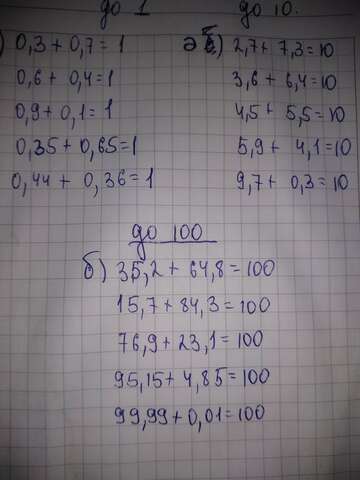 до 1
0,3 + 0,7 = 1
0,6 + 0,4 = 1
0,9 + 0,1 = 1
0,35 + 0,65 = 1
0,44 + 0,36 = 1
до 10.
2,7 + 7,3 = 10
3,6 + 6,4 = 10
4,5 + 5,5 = 10
5,9 + 4,1 = 10
9,7 + 0,3 = 10
до 100
б) 35,2 + 64,8 = 100
15,7 + 84,3 = 100
76,9 + 23,1 = 100
95,15 + 4,85 = 100
99,99 + 0,01 = 100